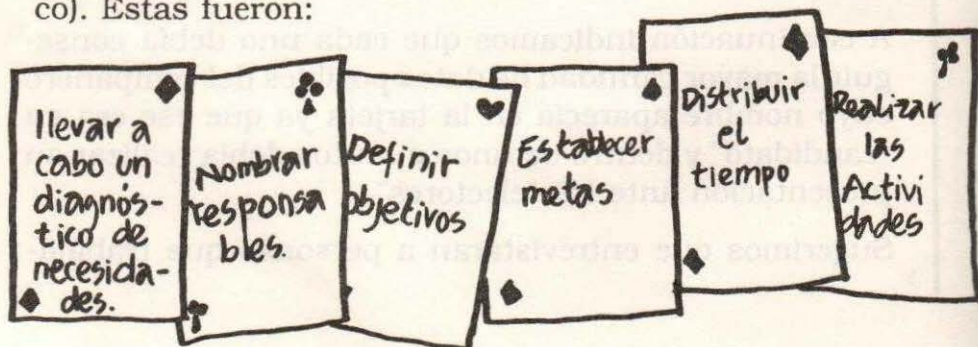 co). Estas fueron:
llevar a
cabo un
diagnós-
tico de
necesida-
des.
Nombrar
responsa
bles.
Definir
objetivos
Establecer
metas
Distribuir
el
tiempo
Realizar
las
Activi
dades